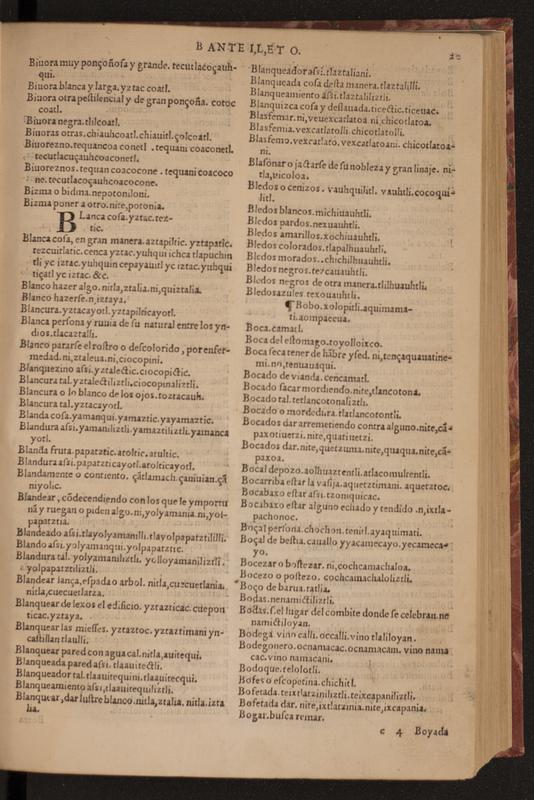 B ANTE I,L,ET O.
20
Biuora muy ponçoñosa y grande. tecutlacoçauh-
qui.
Biuora blanca y larga. yztac coatl.
Biuora otra pestilencial y de gran ponçoña. cotoc
coatl.
Biuora negra. tlilcoatl.
Biuoras otras. chiauhcoatl. chiauitl. çolcoatl.
Biuorezno. tequancoa conetl. tequani coaconetl.
tecutlacuçauhcoaconetl.
Biuoreznos. tequan coacocone. tequani coacoco
ne. tecutlacoçauhcoacocone.
Bizma o bidma. nepotoniloni.
Bizma poner a otro. nite, potonia.
BLanca cosa. yztac. tez-
tic.
Blanca cosa, en gran manera. aztapiltic. yztapatic.
tezcuitlatic. cenca yztac. yuhqui ichca tlapuchin
tli yc iztac. yuhquin cepayauitl yc iztac. yuhqui
tiçatl yc iztac. &c.
Blanco hazer algo. nitla, ztalia. ni, quiztalia.
Blanco hazerse. n, iztaya.
Blancura. yztacayotl. yztapilticayotl.
Blanca persona y ruuia de su natural entre los yn-
dios. tlacaztalli.
Blanco pararse el rostro o descolorido, por enfer-
medad. ni, ztaleua. ni, ciocopini.
Blanquezino assi. yztalectic. ciocopictic.
Blancura tal. yztalectiliztli. ciocopinaliztli.
Blancura o lo blanco de los ojos. toztacauh.
Blancura tal. yztacayotl.
Blanda cosa. yamanqui. yamaztic. yayamaztic.
Blandura assi. yamaniliztli. yamaztiliztli. yamanca
yotl.
Blanda fruta. papatztic. atoltic. atultic.
Blandura assi. papatzticayotl. atolticayotl.
Blandamente o contiento. çatlamach. çaniuian. çã
niyolic.
Blandear, cõdecendiendo con los que le ymportu
nã y ruegan o piden algo. ni, yolyamania. ni, yol-
papatztia.
Blandeado assi. tlayolyamanilli. tlayolpapatztililli.
Blando assi. yolyamanqui. yolpapatztic.
Blandura tal. yolyamaniliztli. yolloyamaniliztli.
yolpapatztiliztli.
Blandear lança, espada o arbol. nitla, cuzcuetlania.
nitla, cuecuetlatza.
Blanquear de lexos el edificio. yztazticac. cuepon
ticac. yztaya.
Blanquear las miesses. yztaztoc. yztaztimani yn-
castillan tlaulli.
Blanquear pared con agua cal. nitla, auitequi.
Blanqueada pared assi. tlaauitectli.
Blanqueador tal. tlaauitequini. tlaauitecqui.
Blanqueamiento assi, tlaauitequiliztli.
Blanquear, dar lustre blanco. nitla, ztalia. nitla. izta
lia.
Blanqueador assi. tlaztaliani.
Blanqueada cosa desta manera. tlaztalilli.
Blanqueamiento assi. tlaztaliliztli.
Blanquizca cosa y deslauada. ticectic. ticeuac.
Blasfemar. ni, veuexcatlatoa ni, chicotlatoa.
Blasfemia. vexcatlatolli. chicotlatolli.
Blasfemo. vexcatlato. vexcatlatoani. chicotlatoa-
ni.
Blasonar o jactarse de su nobleza y gran linaje. ni-
tla, uicoloa.
Bledos o cenizos. vauhquilitl. vauhtli. cocoqui-
litl.
Bledos blancos. michiuauhtli.
Bledos pardos. nexuauhtli.
Bledos amarillos. xochiuauhtli.
Bledos colorados. tlapalhuauhtli.
Bledos morados. chichilhuauhtli.
Bledos negros. tezcauauhtli.
Bledos negros de otra manera. tlilhuauhtli.
Bledos azules. texouauhtli.
¶ Bobo. xolopitli. aquimama-
ti. aompaceua.
Boca. camatl.
Boca del estomago. toyolloixco.
Boca seca tener de hãbre y sed. ni, tençaquauatine-
mi. no, tenuauaqui.
Bocado de vianda. cencamatl.
Bocado sacar mordiendo. nite, tlancotona.
Bocado tal. tetlancotonaliztli.
Bocado o mordedura. tlatlancotontli.
Bocados dar arremetiendo contra alguno. nite, cã-
paxotiuetzi. nite, quatiuetzi.
Bocados dar. nite, quetzuma. nite, quaqua. nite, cã-
paxoa.
Bocal de pozo. aolhuaztentli. atlacomultentli.
Bocarriba estar la vasija. aquetztimani. aquetztoc.
Bocabaxo estar assi. tzoniquicac.
Bocabaxo estar alguno echado y tendido. n, ixtla-
pachonoc.
Boçal persona. chochon. tenitl. ayaquimati.
Boçal de bestia. cauallo yyacamecayo. yecameca-
yo.
Bocezar o bostezar. ni, cochcamachaloa.
Bocezo o postezo. cochcamachaloliztli.
Boço de barua. ratlia.
Bodas. nenamictiliztli.
Bodas. s. el lugar del combite donde se celebran. ne
namictiloyan.
Bodega. vino calli. occalli. vino tlaliloyan.
Bodegonero. ocnamacac. ocnamacani. vino nama
cac. vino namacani.
Bodoque. telolotli.
Bofes o escopetina. chichitl.
Bofetada. teixtlatziniliztli. teixcapaniliztli.
Bofetada dar. nite, ixtlatzinia. nite, ixcapania.
Bogar. busca remar.
c 4 Boyada